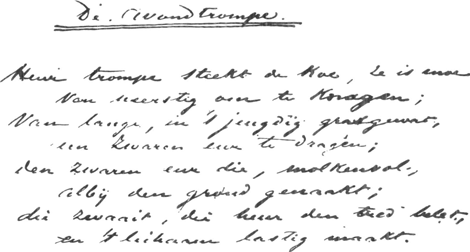 De Avondtrompe.
Heur trompe steekt de koe, ze is moe
Van neerstig om te knagen;
Van lange, in 't jeugdig grasgewas,
een zwaren eur te dragen;
den zwaren eur die, molkenvol,
albij den grond genaakt;
die zwaait, die heur den tred belet,
en 't lichaam lastig maakt.